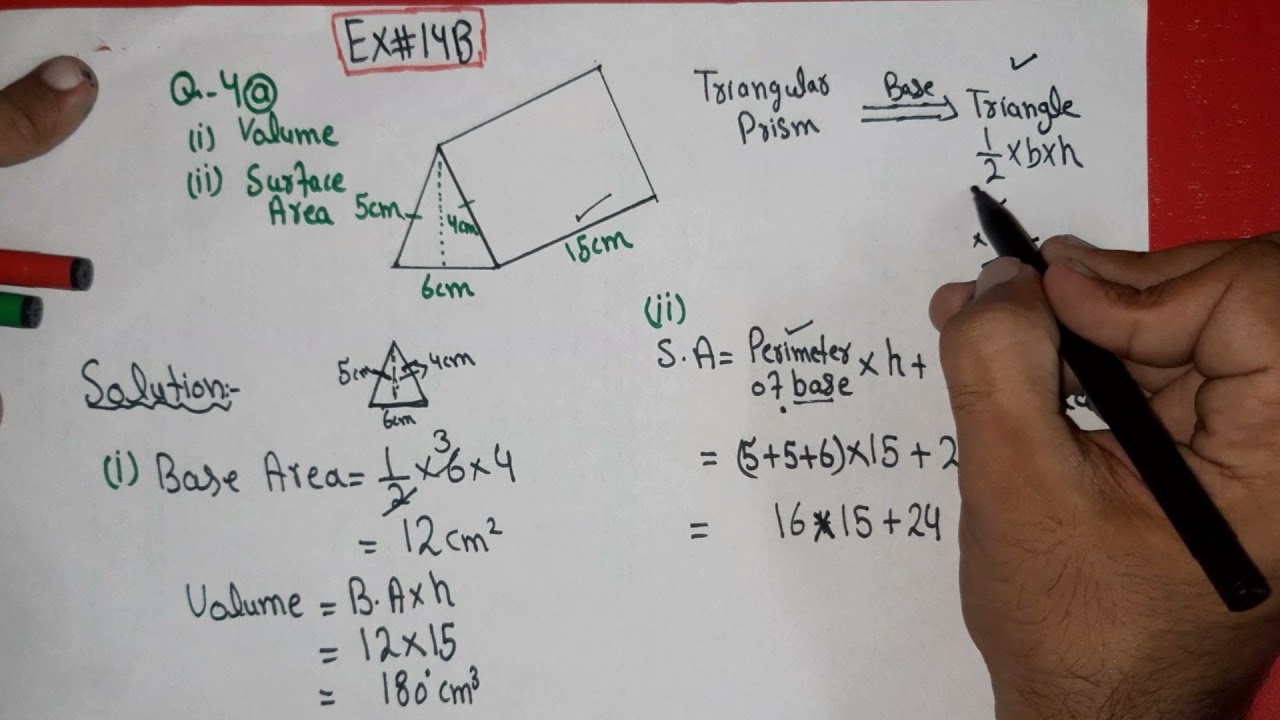 EX#14B
Q-4@
(i) Volume
(ii) Surface
Area
5cm
4cm
6cm
15cm
Triangular
Prism
Base
Triangle
1/2 × b × h
Solution:-
5cm
4cm
6cm
(i) Base Area = 1/2 × 6 × 4
3
= 12 cm²
Volume = B.A × h
= 12 × 15
= 180 cm³
(ii)
S.A = Perimeter × h +
of base
= (5+5+6) × 15 + 2
= 16 × 15 + 24